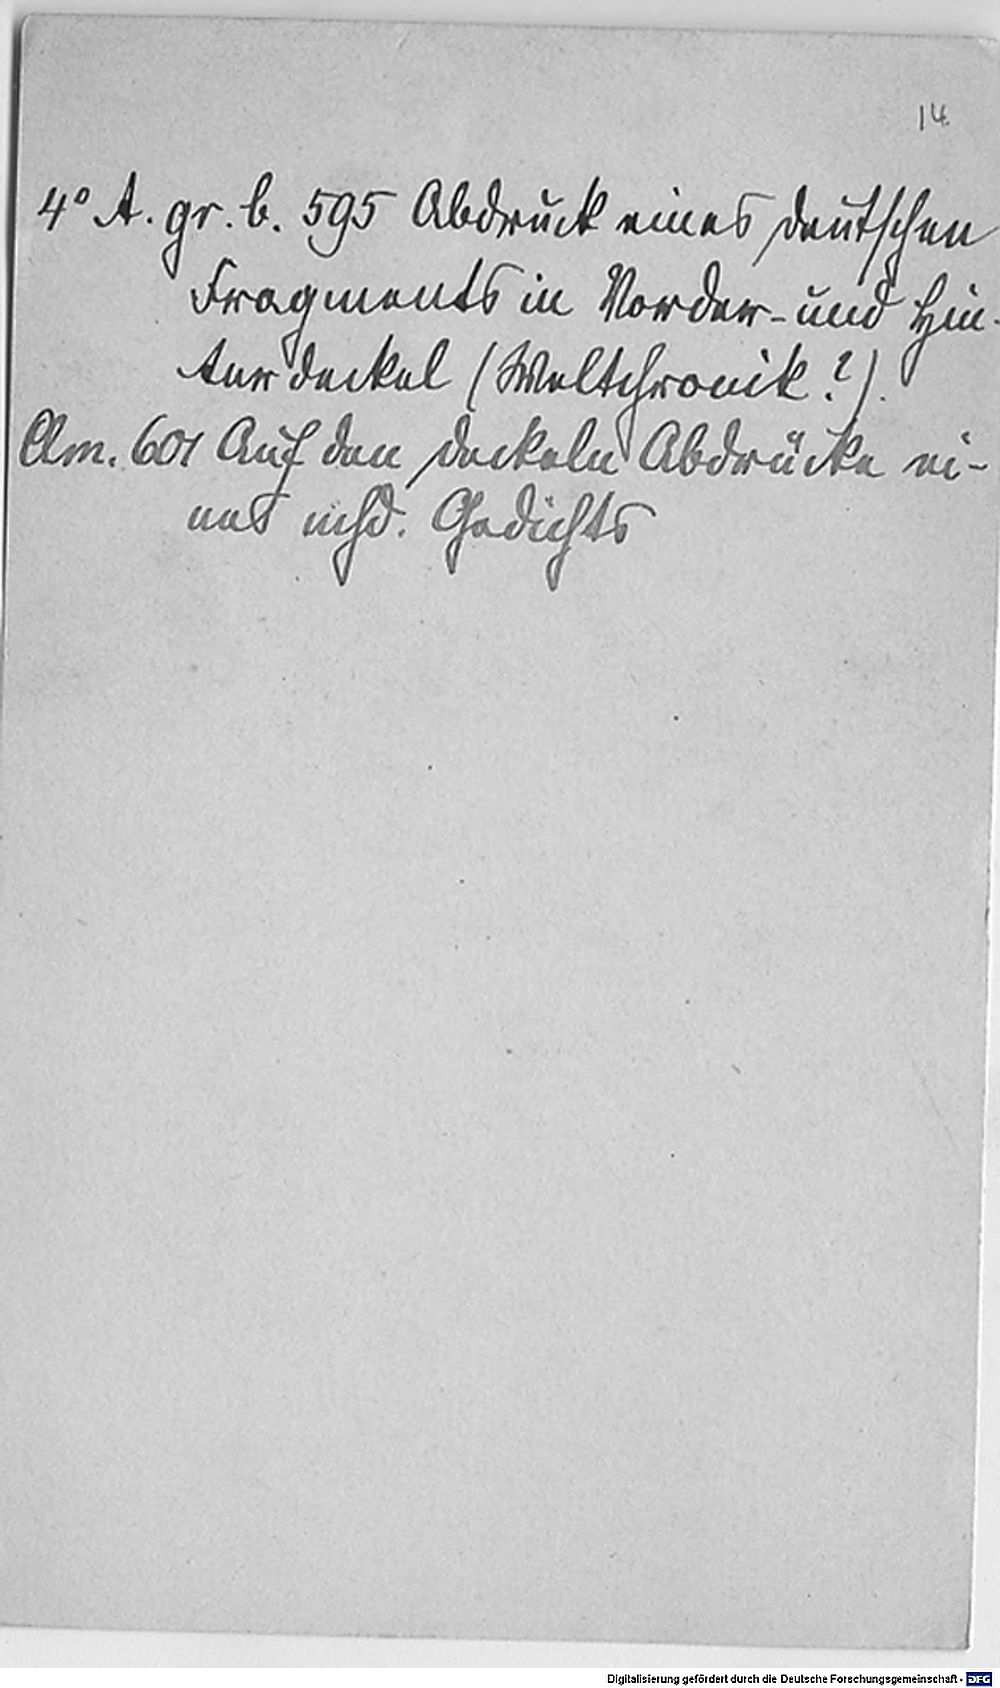 14
4° A. gr. b. 595 Abdruck eines deutschen
Fragments in Vorder- und Hin-
terdeckel (Weltchronik?).
Clm. 601 Auf den Deckeln Abdrücke ei-
nes mhd. Gedichts
Digitalisierung gefördert durch die Deutsche Forschungsgemeinschaft - DFG